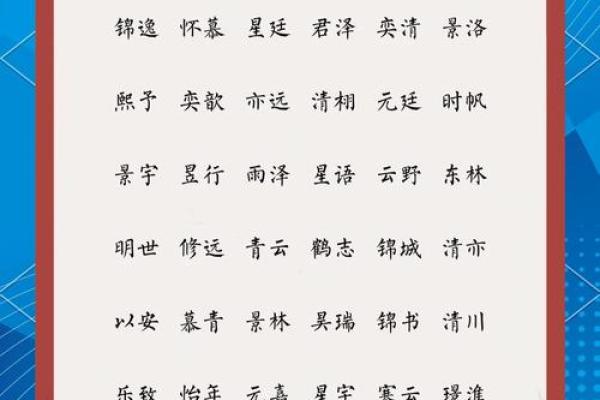 锦逸 怀慕 星廷 君泽 奕清 景洛
熙予 奕歆 亦远 清栩 元廷 时帆
景宇 昱行 雨泽 星语 云野 东林
明世 修远 青云 鹤志 锦城 清亦
以安 慕青 景林 昊瑞 锦书 清川
乐致 怡年 元嘉 星宇 寒云 璟淮